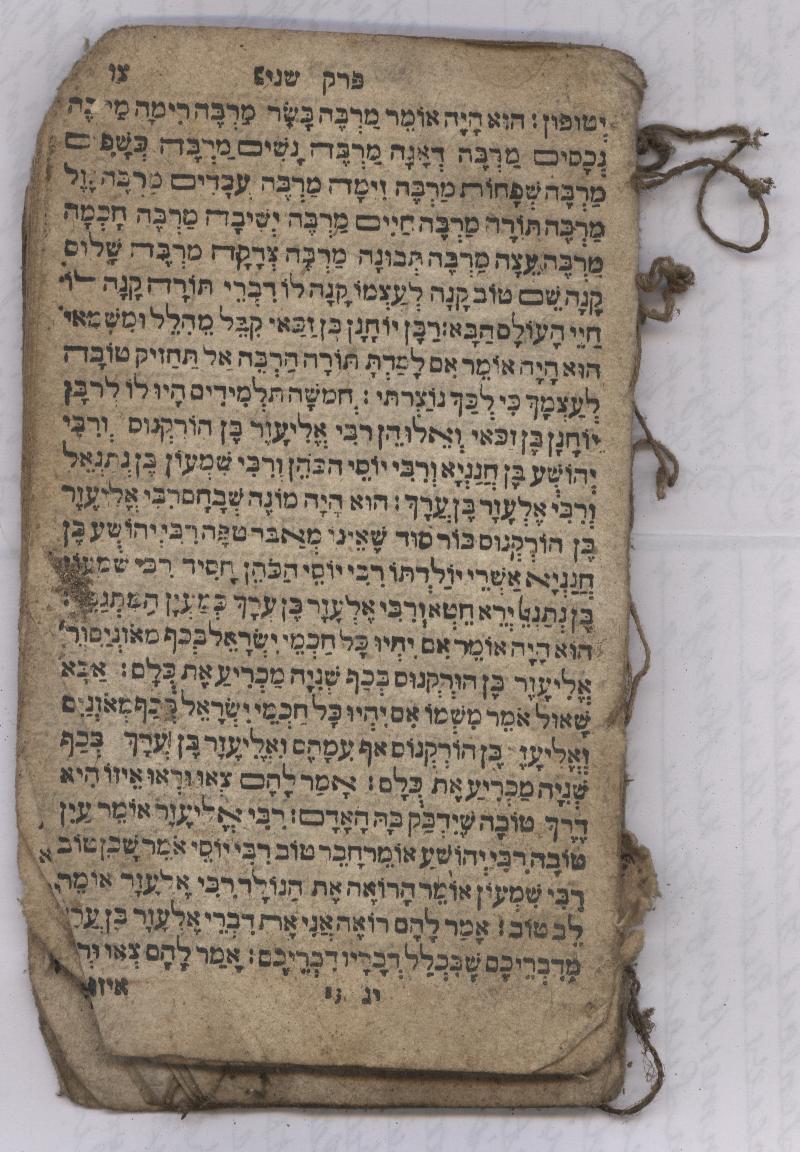 פרק שני צו
יְטוּפוּן׃ הוּא הָיָה אוֹמֵר מַרְבֶּה בָּשָׂר מַרְבֶּה רִימָה מַרְבֶּה
נְכָסִים מַרְבֶּה דְאָגָה מַרְבֶּה נָשִׁים מַרְבֶּה כְּשָׁפִים
מַרְבֶּה שְׁפָחוֹת מַרְבֶּה זִימָה מַרְבֶּה עֲבָדִים מַרְבֶּה גָזֵל
מַרְבֶּה תוֹרָה מַרְבֶּה חַיִּים מַרְבֶּה יְשִׁיבָה מַרְבֶּה חָכְמָה
מַרְבֶּה עֵצָה מַרְבֶּה תְבוּנָה מַרְבֶּה צְדָקָה מַרְבֶּה שָׁלוֹם
קָנָה שֵׁם טוֹב קָנָה לְעַצְמוֹ קָנָה לוֹ דִבְרֵי תוֹרָה קָנָה לוֹ
חַיֵּי הָעוֹלָם הַבָּא׃ רַבָּן יוֹחָנָן בֶּן זַכַּאי קִבֵּל מֵהִלֵּל וּמִשַּׁמַּאי
הוּא הָיָה אוֹמֵר אִם לָמַדְתָּ תּוֹרָה הַרְבֵּה אַל תַּחֲזִיק טוֹבָה
לְעַצְמָךְ כִּי לְכָךְ נוֹצָרְתָּ׃ חֲמִשָּׁה תַלְמִידִים הָיוּ לוֹ לְרַבָּן
יוֹחָנָן בֶּן זַכַּאי וְאֵלוּ הֵן רַבִּי אֱלִיעֶזֶר בֶּן הוֹרְקְנוֹס וְרִבִּי
יְהוֹשֻׁעַ בֶּן חֲנַנְיָא וְרִבִּי יוֹסֵי הַכֹּהֵן וְרִבִּי שִׁמְעוֹן בֶּן נְתַנְאֵל
וְרִבִּי אֶלְעָזָר בֶּן עֲרָךְ׃ הוּא הָיָה מוֹנֶה שְׁבָחָם רִבִּי אֱלִיעֶזֶר
בֶּן הוֹרְקְנוֹס בּוֹר סוּד שֶׁאֵינִי מְאַבֵּר טִפָּה רִבִּי יְהוֹשֻׁעַ בֶּן
חֲנַנְיָא אַשְׁרֵי יוֹלַדְתּוֹ רִבִּי יוֹסֵי הַכֹּהֵן חָסִיד רִבִּי שִׁמְעוֹן
בֶּן נְתַנְאֵל יְרֵא חֵטְא וְרִבִּי אֶלְעָזָר בֶּן עֲרָךְ כְּמַעְיָן הַמִּתְגַּבֵּר׃
הוּא הָיָה אוֹמֵר אִם יִהְיוּ כָּל חַכְמֵי יִשְׂרָאֵל בְּכַף מֹאזְנַיִם וְר'
אֱלִיעֶזֶר בֶּן הוֹרְקְנוֹס בְּכַף שְׁנִיָּה מַכְרִיעַ אֶת כֻּלָּם׃ אַבָּא
שָׁאוּל אֹמֵר מִשְּׁמוֹ אִם יִהְיוּ כָּל חַכְמֵי יִשְׂרָאֵל בְּכַף מֹאזְנַיִם
וֶאֱלִיעֶזֶר בֶּן הוֹרְקְנוֹס אַף עִמָּהֶם וֶאֱלִיעֶזֶר בֶּן עֲרָךְ בְּכַף
שְׁנִיָּה מַכְרִיעַ אֶת כֻּלָּם׃ אָמַר לָהֶם צְאוּ וּרְאוּ אֵיזוֹ הִיא
דֶּרֶךְ טוֹבָה שֶׁיִּדְבַּק בָּהּ הָאָדָם׃ רִבִּי אֱלִיעֶזֶר אוֹמֵר עַיִן
טוֹבָה רִבִּי יְהוֹשֻׁעַ אוֹמֵר חָבֵר טוֹב רִבִּי יוֹסֵי אֹמֵר שָׁכֵן טוֹב
רִבִּי שִׁמְעוֹן אוֹמֵר הָרוֹאֶה אֶת הַנּוֹלָד רִבִּי אֶלְעָזָר אוֹמֵר
לֵב טוֹב׃ אָמַר לָהֶם רוֹאֶה אֲנִי אֶת דִּבְרֵי אֶלְעָזָר בֶּן עֲרָךְ
מִדִּבְרֵיכֶם שֶׁבִּכְלַל דְּבָרָיו דִבְרֵיכֶם׃ אָמַר לָהֶם צְאוּ
יג איזו